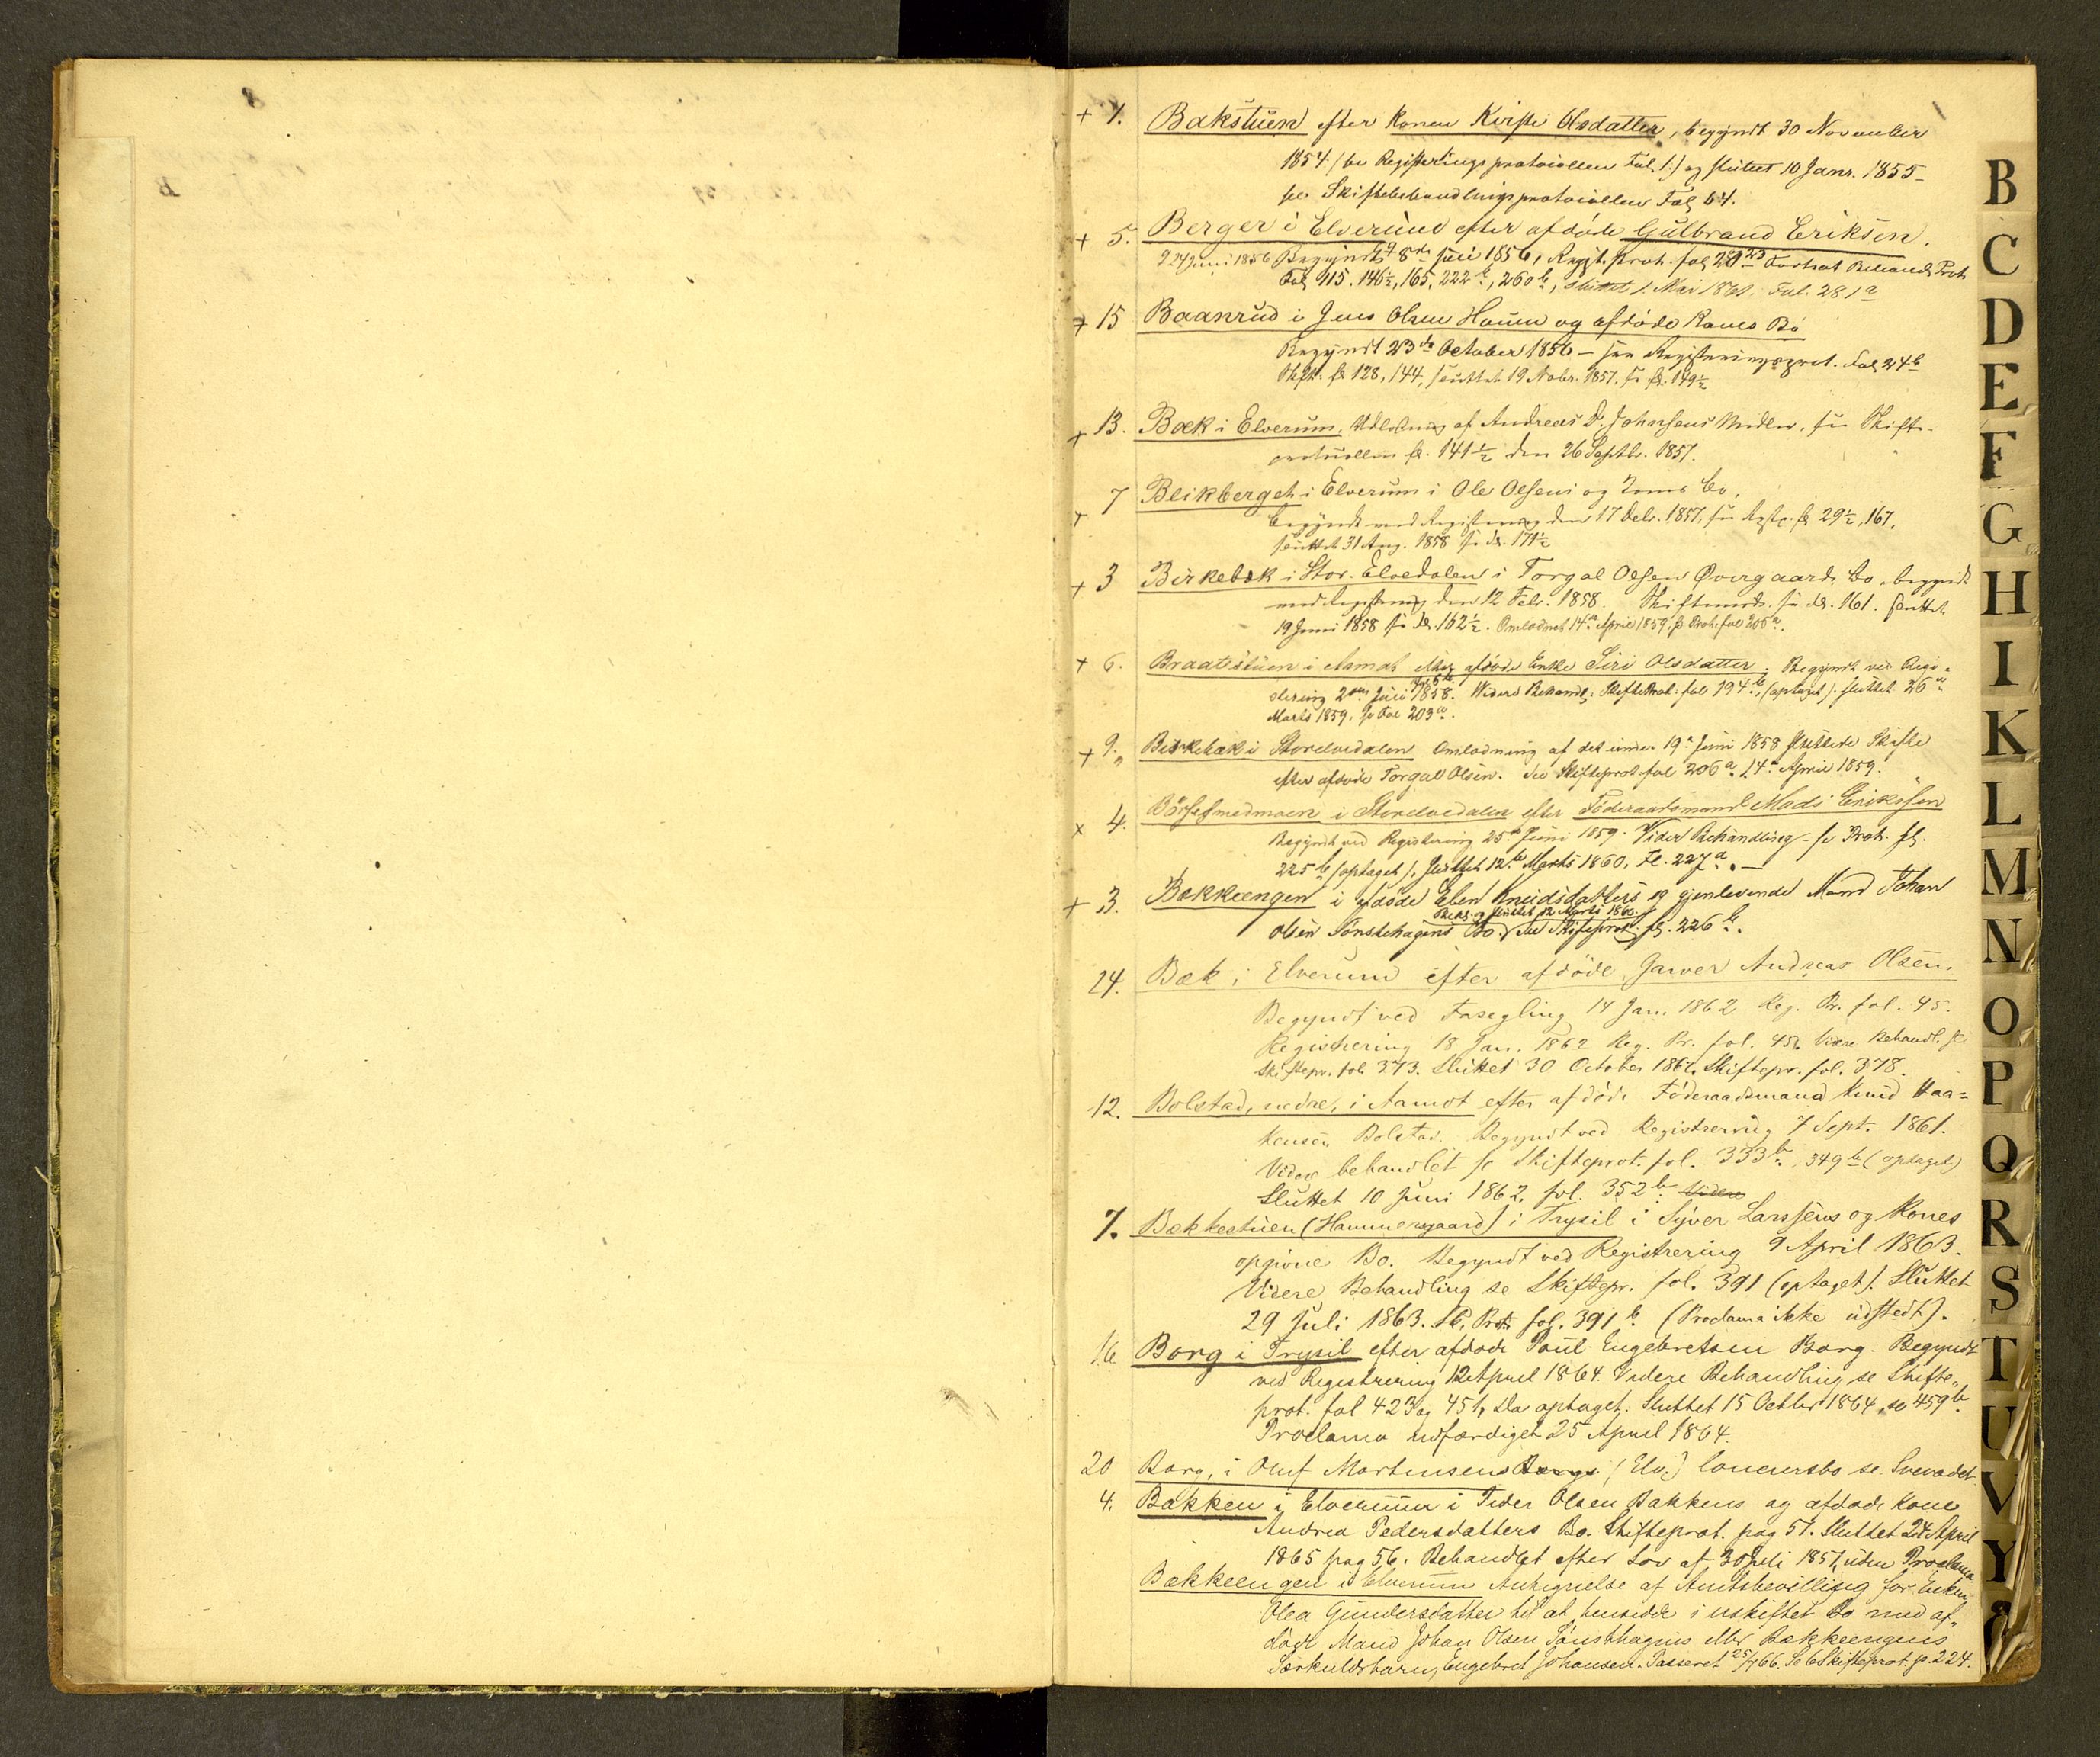 + 1. Bakstuen efter Konen Kirsti Olsdatter, begyndt 30 November
1854 (se Registeringsprotocollen Fol. 1.) og sluttet 10 Janr. 1855 -
se Skiftebehandlingsprotocollen Fol 64.
+ 5. Berger i Elverum efter afdöde Gulbrand Eriksen.
24 Juni 1856 Begyndt 8de Juli 1856, Regist. Prot. fol Fortsat Behand. Prot.
Fol 115. 146½, 165, 222b, 260b, sluttet 1. Mai 1861. Fol. 281a
+ 15 Baanrud i Jens Olsen og afdöde Kones Bo
Begyndt 23de October 1856 - se Registeringsprot. Fol 24b
Skift. fol 128, 144, sluttet 19 Novbr. 1857. se fol. 149½
+ 13. Bæk i Elverum, Udlodning af Andreas D. Johnsens Midler, se Skifte-
protocollen fol. 141½ den 26 Septbr. 1857.
+ 7 Blikberget i Elverum i Ole Olsens og Kones bo,
begyndt med Registering den 17 Debr. 1857, se fol 29½, 167.
sluttet 31 Aug. 1858 se fol. 171½
+ 3 Birkebæk i Stor-Elvedalen i Torgal Olsen Øvergaards bo, begyndt
med Registering den 12 Febr. 1858. se fol. 161. sluttet
19 Juni 1858 se fol. 162½. Omlodnet 14de April 1859, se Prot. fol 206a.
+ 6. Braatestuen i Aamot efter afdöde Enke Siri Olsdatter. Begyndt ved Regi-
stering 2den Juli 1858. Videre Behandl. Skifte Prot. fol 194b, (optaget). sluttet 26de
Marts 1859. Se Fol 203a.
+ 9. „ Birkebæk i Storelvedalen Omlodning af det under 19de Juni 1858 sluttede Skifte
efter afdöde Torgal Olsen. See Skifteprot fol 206a. 14de April 1859.
x 4. i Storelvedalen efter Föderaadsmand Mads Eriksen
Begyndt ved Registering 25de Juni 1859. Videre Behandling - se Prot. fol.
225b (optaget), sluttet 12te Marts 1860, Fl. 227a. -
+ 3. Bækkeengen i afdöde Elen Knudsdatters og gjenlevende Mand Johan
Beh. og sluttet 12 Marts 1860
Olsen Sönstehagens Bo. See Skifteprot fol. 226b.
24. Bæk i Elverum efter afdöde Garver Andreas Olsen.
Begyndt ved Forsegling 14 Jan. 1862 Reg. Pr. fol. 45.
Registrering 18 Jan. 1862 Reg. Pr. fol. 45b. Videre Behandl. se
Skiftepr. fol. 373. Sluttet 30 October 1862. Skiftepr. fol. 378.
12. Bolstad, nedre, i Aamot efter afdöde Föderaadsmand Knud Haa-
kensen Bolstad. Begyndt ved Registrering 7 Sept. 1861.
Videre behandlet se Skifteprot. fol. 333b. 349b (optaget)
Sluttet 10 Juni 1862. fol. 352b. Videre
7. Bækkestuen (Hammersgaard) i Trysil i Syver Larssens og Kones
opgivne Bo. Begyndt ved Registrering 9 April 1863.
Videre Behandling se Skiftepr. fol. 391 (optaget). Sluttet
29 Juli 1863. Sk. Prot. fol. 391b. (Proclama ikke udstedt).
16 Borg i Trysil efter afdöde Poul Engebretsen Borg. Begyndt
ved Registrering 12 April 1864. Videre Behandling se Skifte-
prot. fol 423 og 451, da optaget. Sluttet 15 Octbr 1864, se 459b.
Proclama udfærdiget 25 April 1864.
20 Borg, i Oluf Mortensens Borgs (Elv.) concursbo se Svevadet
4. Bakken i Elverum i Peder Olsen Bakkens og afdöde Kone
Andrea Pedersdatters Bo. Skifteprot. pag 51. Sluttet 24 April
1865 pag 56. Behandlet efter Lov af 30 Juli 1857, uden Proclama
Bækkeengen i Elverum Antegnelse af Amtsbevilling for Enken
Olea Gundersdatter til at hensidde i uskiftet Bo med af-
döde Mand Johan Olsen Sönsthagens eller Bækkeengens
Særkuldsbarn, Engebret Johansen. Passeret 25/7 66. Se Skifteprot p. 224.
B
C
D
E
F
G
H
I
K
L
M
N
O
P
Q
R
S
T
U
V
Y